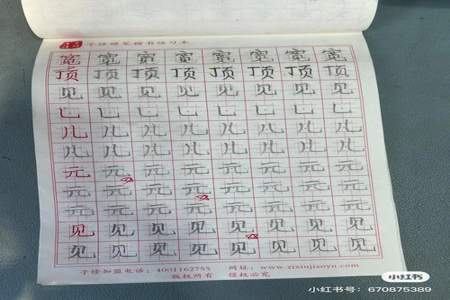 子修硬笔楷书练习本
宽 宽 宽 宽 宽 宽 宽 宽
顶 顶 顶 顶 顶 顶 顶 顶
见 见 见 见 见 见 见 见
乚 乚 乚 乚 乚 乚 乚 乚
儿 儿 儿 儿 儿 儿 儿 儿
儿 儿 儿 儿 儿 儿 儿 儿
元 元 元 元 元 元 元 元
元 元 元 元 元 元 元 元
元 元 元 元 元 元 元 元
见 见 见 见 见 见 见 见
见 见 见 见 见 见 见 见
子修加盟电话：4001162755 网址：www.zixiujiaoyu.com
版权所有 侵权必究
小红书
小红书号：670875389